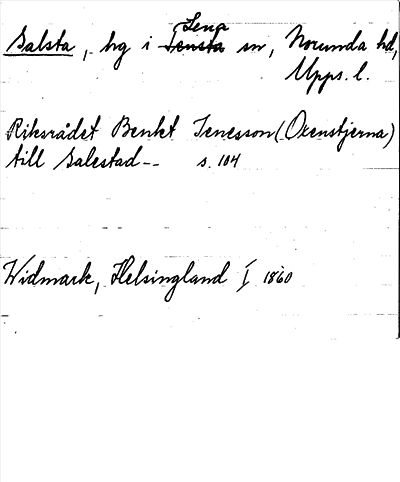 Salsta, hg i Lena Tensta sn, Norunda hd,
Upps. l.
Riksrådet Benkt Jenesson (Oxenstjerna)
till Salestad-- s. 104
Widmark, Helsingland I 1860